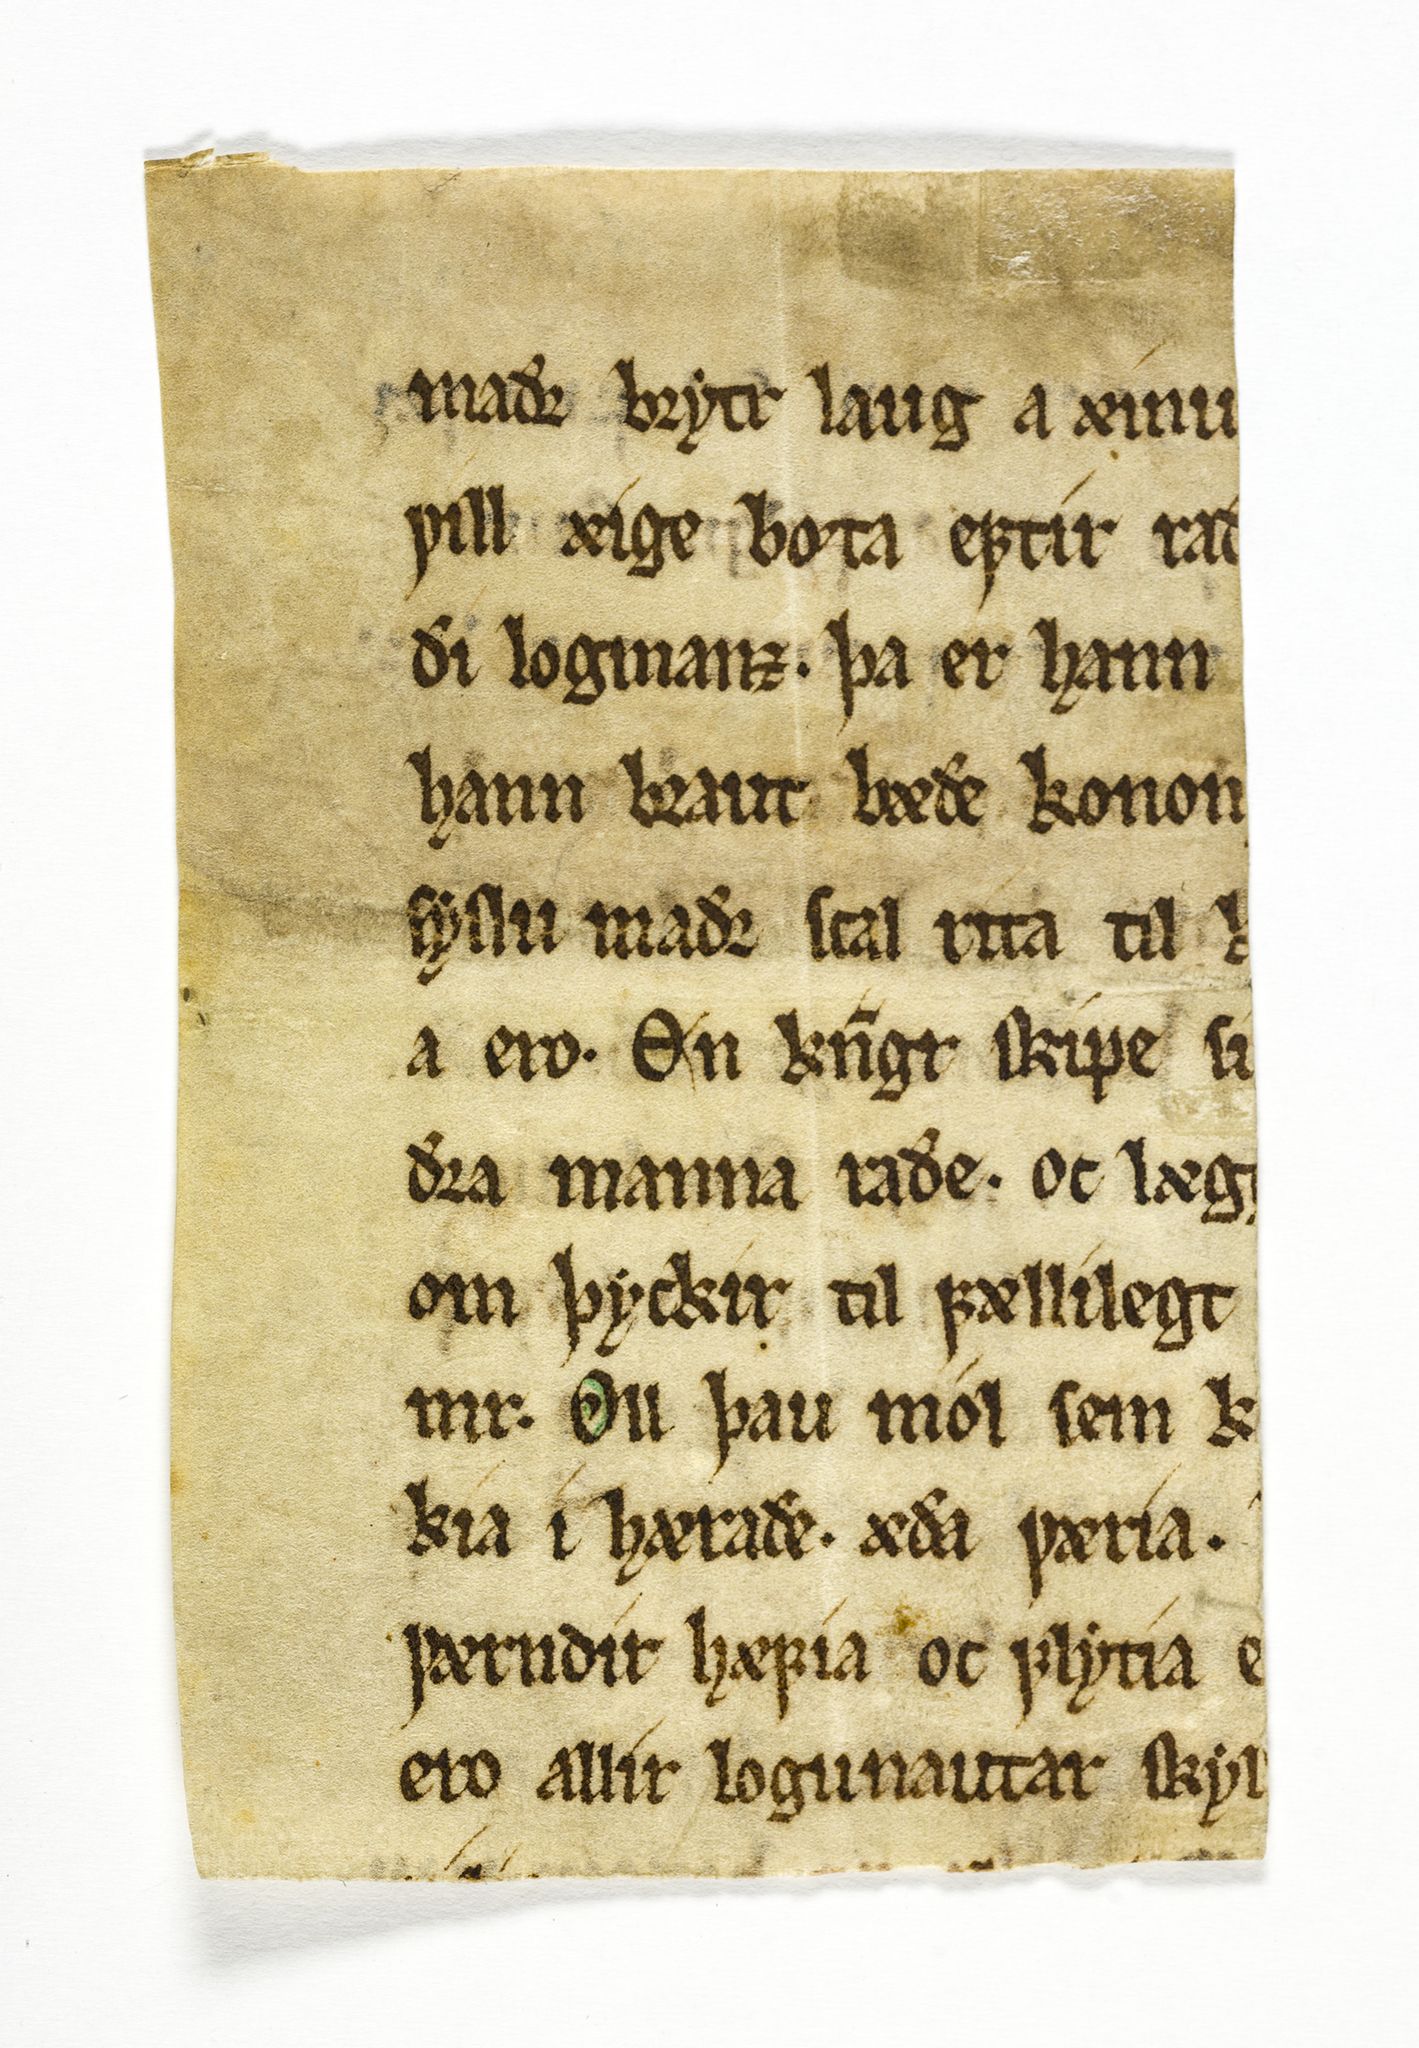 maðr brytr laug a æinu
vill æige bǿta eftir rað
ði logmanz. þa er hann
hann braut bæðe konon
syslu maðr scal rita til k
a ero. En kn̄gr skipe si
ðra manna raðe. oc lægg
om þyckir til fællilegt
mr. Oll þau mól sem k
kia i hæraðe. æða væria.
værndir hæfia oc flytia e
ero allir logunautar skyl